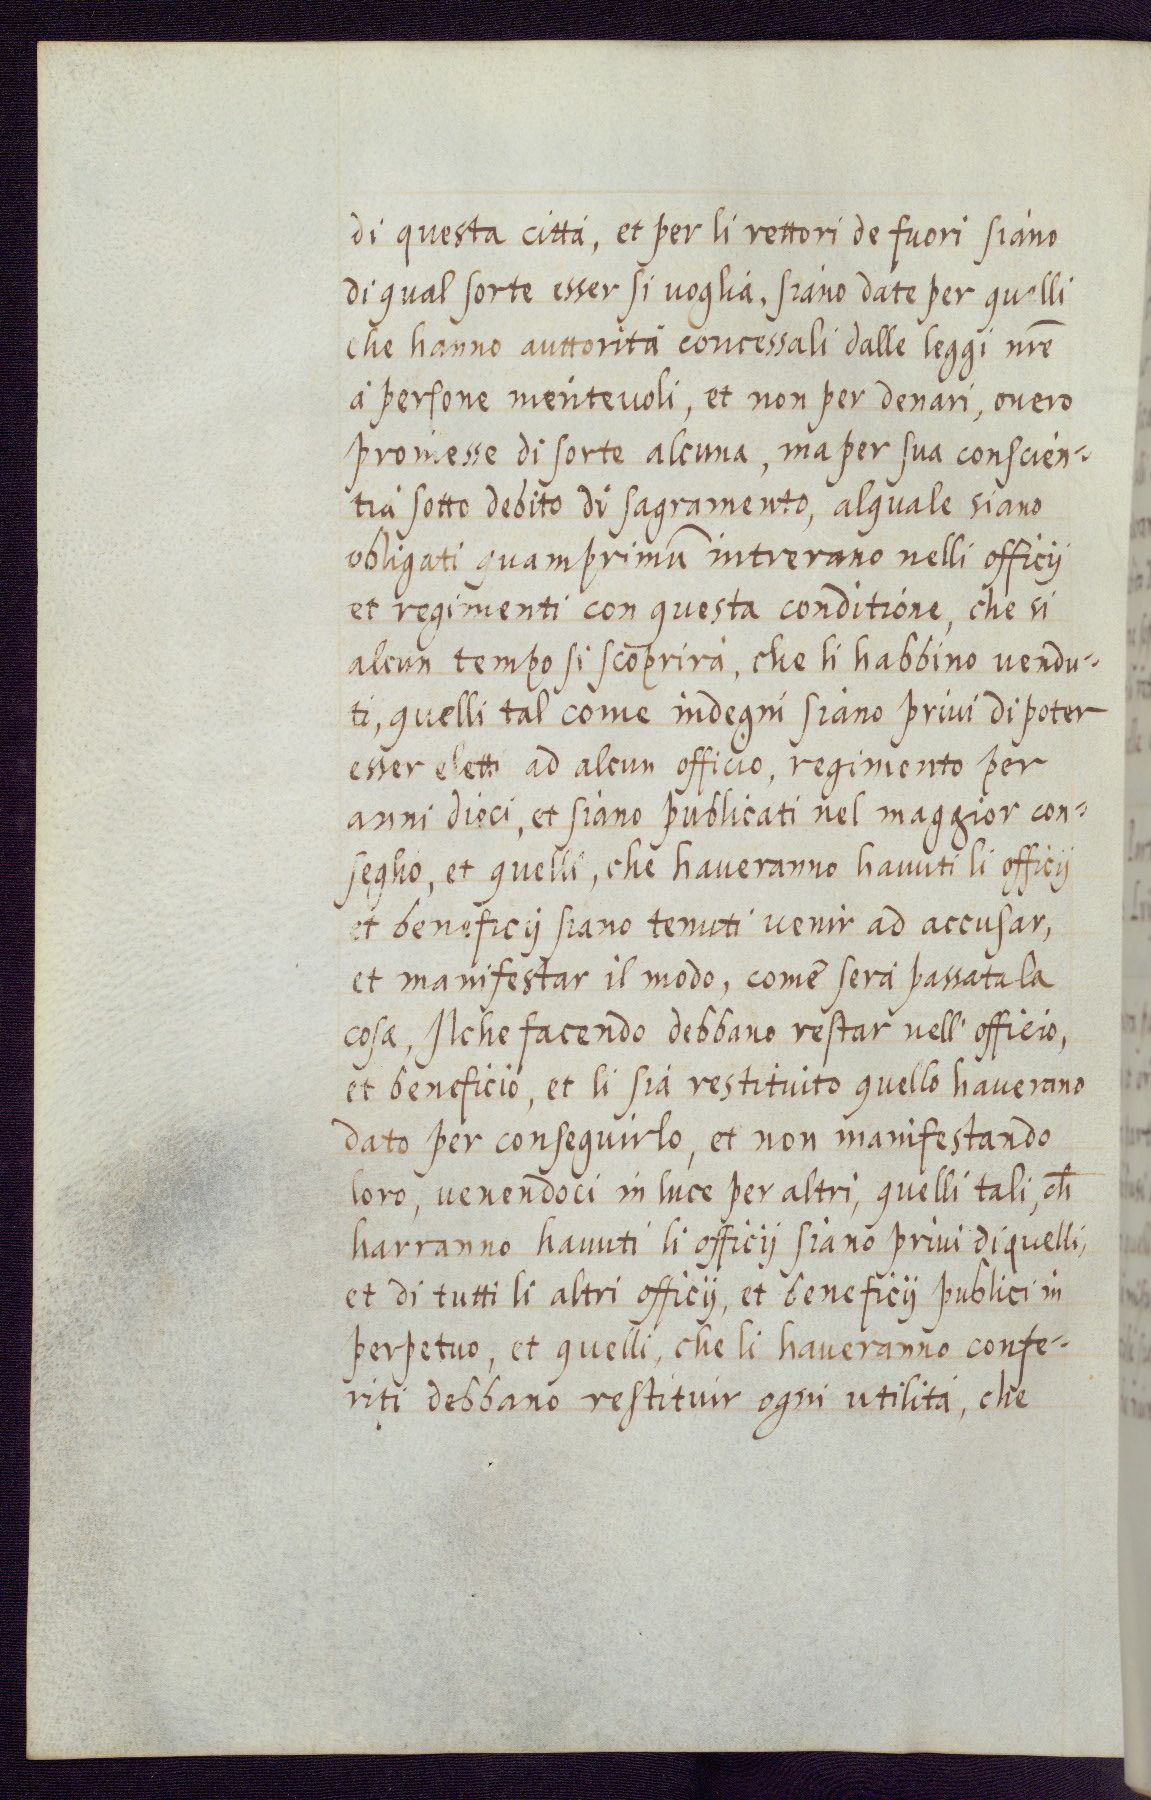 di questa città, et per li rettori de fuori siano
di qual sorte esser si voglia, siano date per quelli
che hanno auttorità concessali dalle leggi nrē
à persone meriteuoli, et non per denari, ouero
promesse di sorte alcuna, ma per sua conscien-
tia sotto debito di sagramento, alquale siano
obligati quamprimū intrerano nelli officij
et regimenti con questa conditione, che si
alcun tempo si scoprirà, che li habbino vendu-
ti, quelli tal come indegni siano priui di poter
esser eletti ad alcun officio, regimento per
anni dieci, et siano publicati nel maggior con-
seglio, et quelli, che haueranno hauuti li officij
et beneficij siano tenuti venir ad accusar,
et manifestar il modo, come serà passata la
cosa, Ilche facendo debbano restar nell' officio,
et beneficio, et li sia restituito quello hauerano
dato per conseguirlo, et non manifestando
loro, venendoci in luce per altri, quelli tali, ch̄
harranno hauuti li officij siano priui di quelli,
et di tutti li altri officij, et beneficij publici in
perpetuo, et quelli, che li haueranno confe-
riti debbano restituir ogni utilità, che